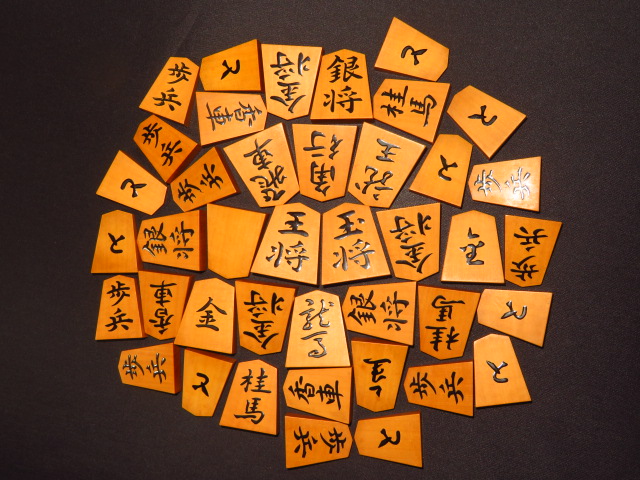 歩兵
と
金将
銀将
と
香車
桂馬
と
歩兵
歩兵
飛車
角行
龍王
と
歩兵
と
と
銀将
王将
玉将
金将
歩兵
歩兵
香車
金
金将
龍馬
銀将
桂馬
と
歩兵
と
桂馬
香車
歩兵
と
歩兵
と